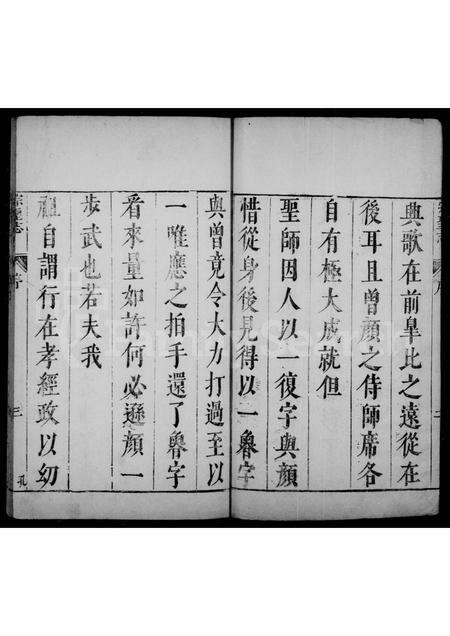 與歌在前臯比之遠從在
後耳且曾顏之侍師席各
自有極大成就但
聖師因人以一復字與顏
惜從身後見得以一魯字
與曾竟令大力打過至以
一唯應之拍手還了魯字
看來量如許何必遜顏一
步武也若夫我
祖自謂行在孝經政以幼
宗聖志
序
三
孔